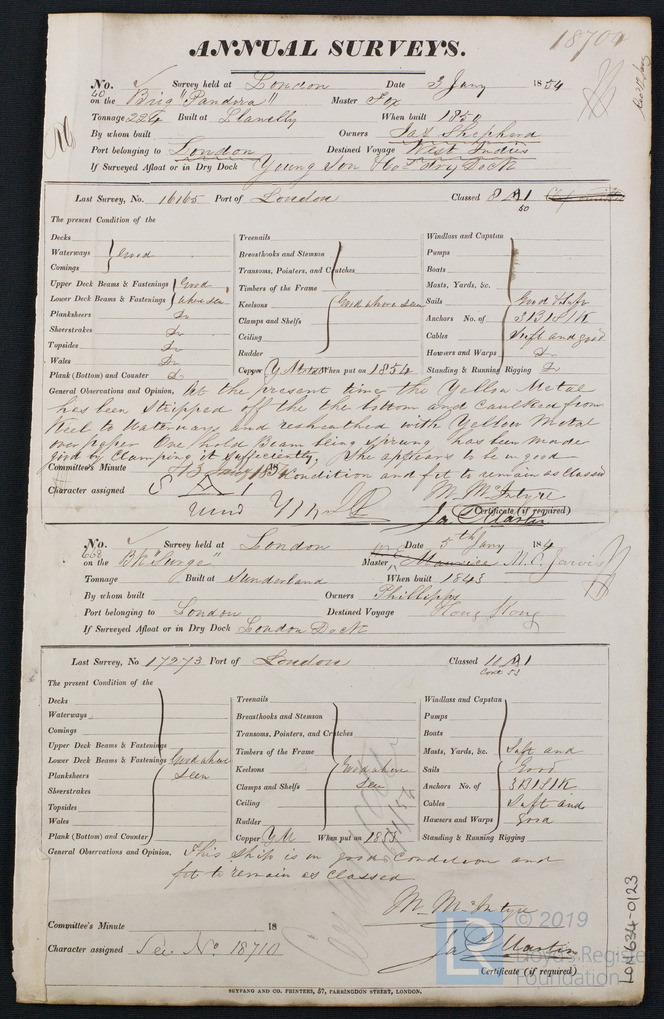 ANNUAL SURVEYS.
18709
No. Survey held at London Date 3 Jany 1854
on the Brig "Pandora" Master Fox
Tonnage 224 Built at Llanelly When built 1850
By whom built Owners Jas Shepherd
Port belonging to London Destined Voyage West Indies
If Surveyed Afloat or in Dry Dock Young Son & Co Dry Dock
Last Survey, No. 16165 Port of London Classed 8 A 1
50
The present Condition of the
Decks
Waterways Good
Comings
Upper Deck Beams & Fastenings Good
Lower Deck Beams & Fastenings where seen
Planksheers Do
Sheerstrakes Do
Topsides Do
Wales Do
Plank (Bottom) and Counter Do
Treenails
Breasthooks and Stemson
Transoms, Pointers, and Crutches
Timbers of the Frame
Keelsons Good where seen
Clamps and Shelfs
Ceiling
Rudder
Copper Y Metal When put on 1854
Windlass and Capstan
Pumps
Boats
Masts, Yards, &c.
Sails Good & Suft
Anchors No. of 3B1S1K
Cables Suft and good
Hawsers and Warps Do
Standing & Running Rigging Do
General Observations and Opinion, At the present time the Yellow Metal
has been stripped off the the bottom and caulked from
Keel to Waterways and resheathed with Yellow Metal
over paper One hold Beam being sprung has been made
good by clamping it sufficiently, She appears to be in good
Committee's Minute 13 Jany 1854 Condition and fit to remain as classed
Character assigned 8 A 1
M. McIntyre
Jas Martin
Certificate (if required)
No. Survey held at London Date 5th Jany 184
668
on the Bk "George" Master M. C. Jarvis
Tonnage Built at Sunderland When built 1843
By whom built Owners Phillipps
Port belonging to London Destined Voyage Hong Kong
If Surveyed Afloat or in Dry Dock London Dock
Last Survey, No 17273 Port of London Classed 10 A 1
Cont 53
The present Condition of the
Decks
Waterways
Comings
Upper Deck Beams & Fastenings
Lower Deck Beams & Fastenings Good where
Planksheers seen
Sheerstrakes
Topsides
Wales
Plank (Bottom) and Counter
Treenails
Breasthooks and Stemson
Transoms, Pointers, and Crutches
Timbers of the Frame
Keelsons Good where
Clamps and Shelfs seen
Ceiling
Rudder
Copper YM When put on 1853
Windlass and Capstan
Pumps
Boats
Masts, Yards, &c. Suft and
Sails Good
Anchors No. of 3B1S1K
Cables Suft and
Hawsers and Warps Good
Standing & Running Rigging
General Observations and Opinion, This Ship is in good Condition and
fit to remain as classed
M. McIntyre
Committee's Minute 18
Jas Martin
Character assigned See No 18710
Certificate (if required)
SEYFANG AND CO. PRINTERS, 57, FARRINGDON STREET, LONDON.
LON634-0123
LR
© 2019
Lloyd's Register
Foundation